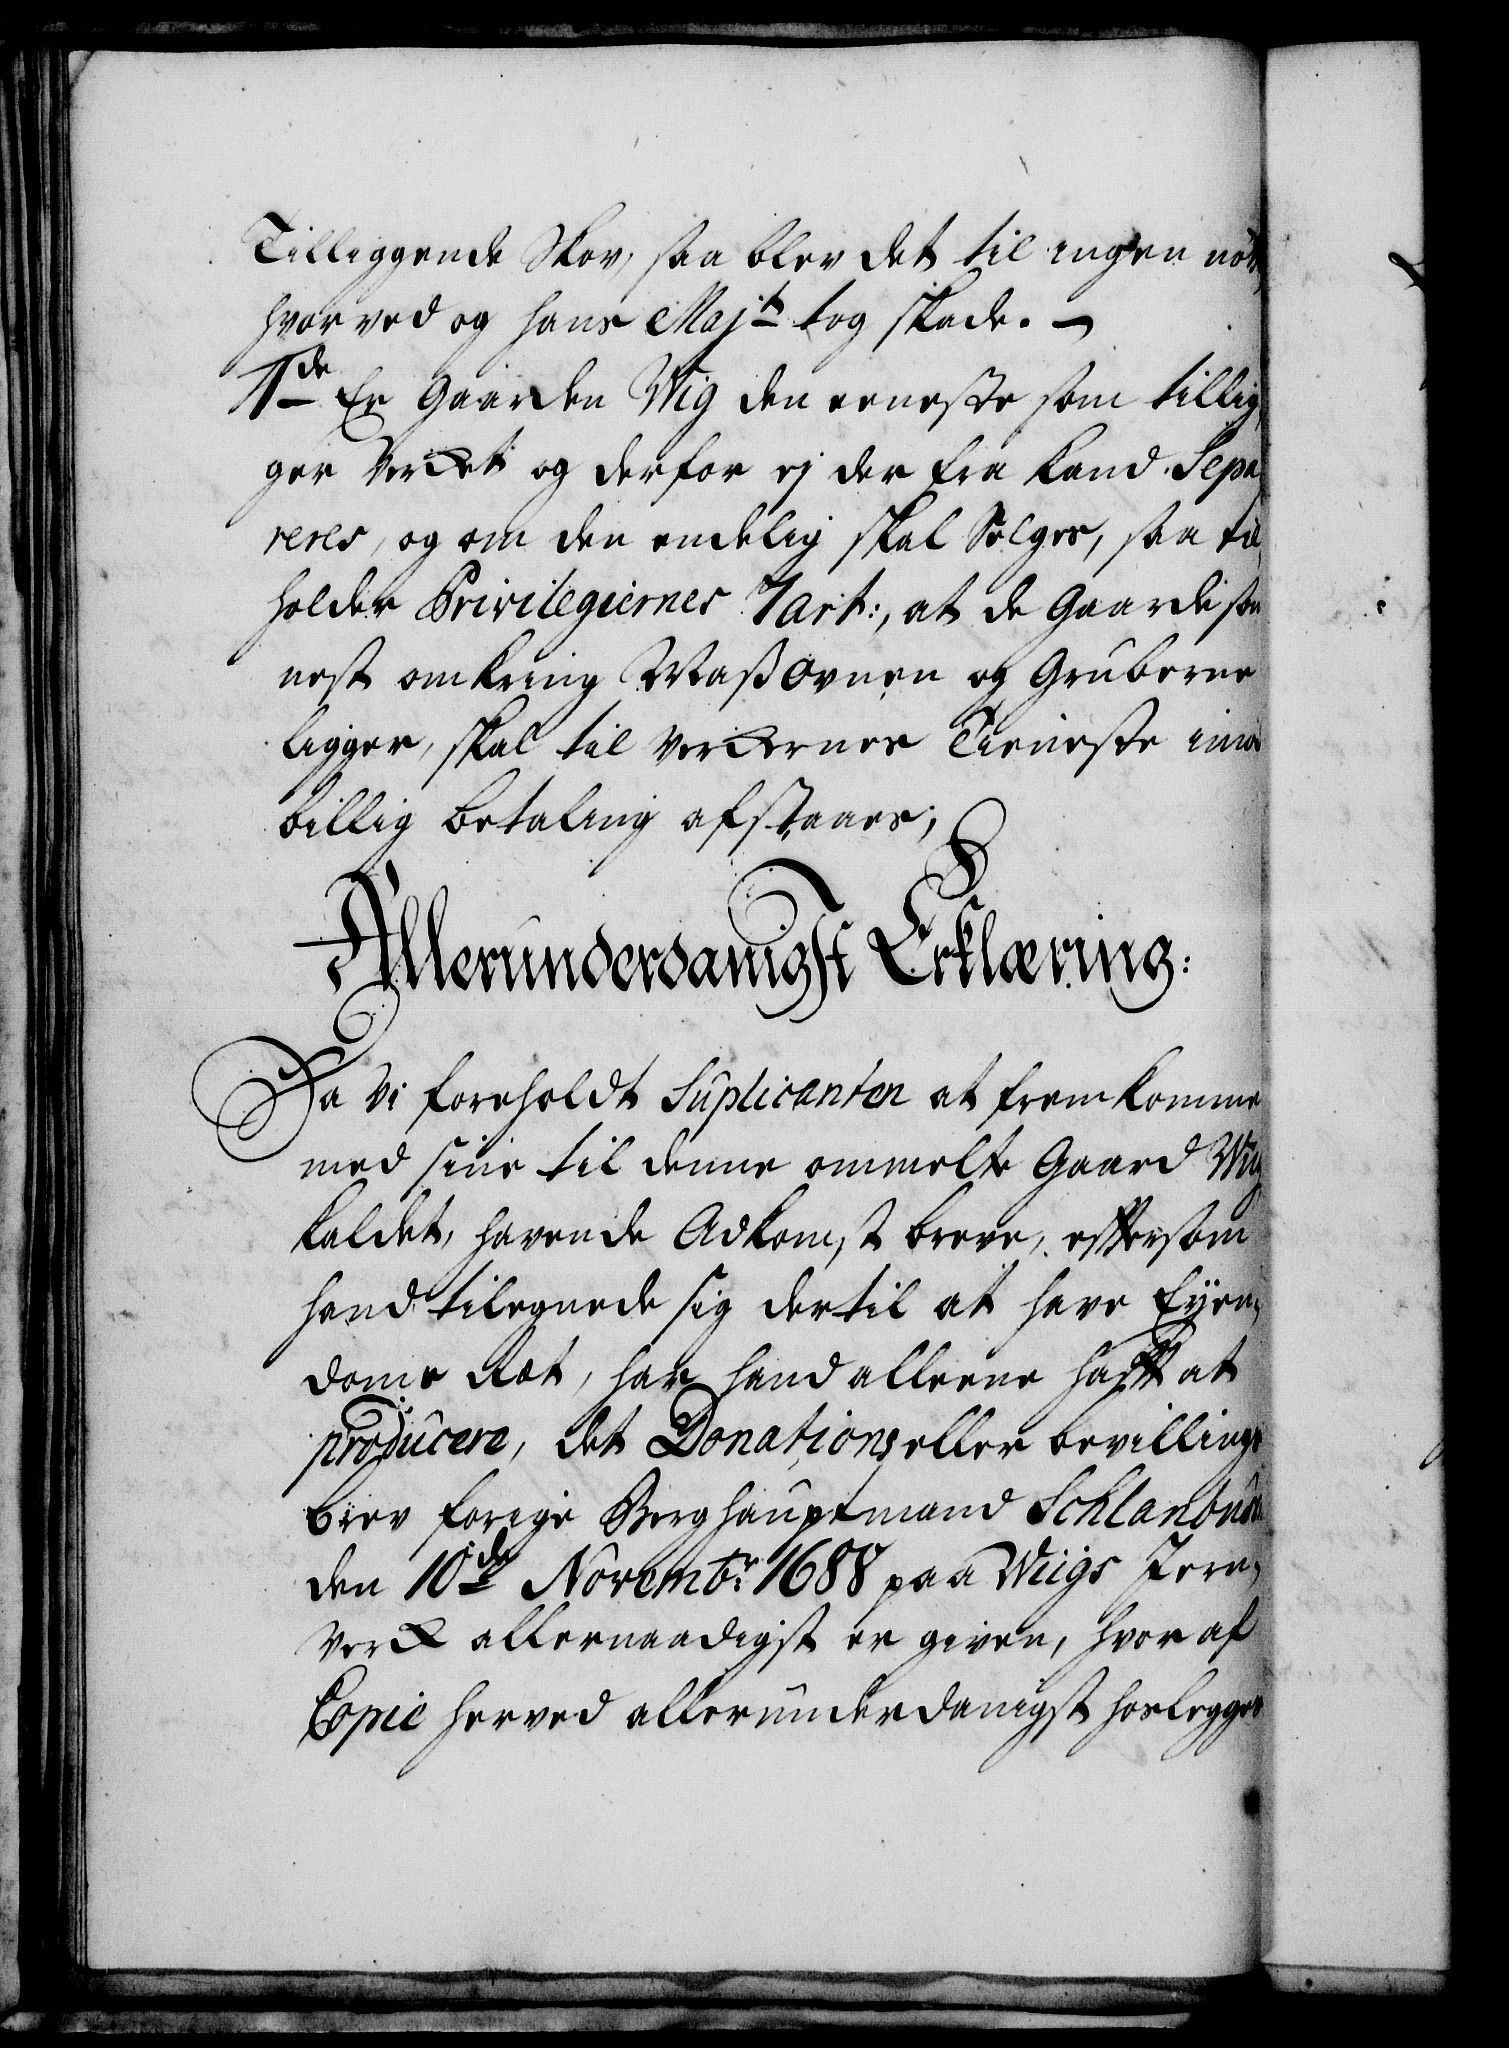 Tilliggende Skov, saa blev det til ingen nøtte,
hvorved og hans Majt tog skade. –
7de Er Gaarden Wig den eeneste som tillig,
ger Verket og derfor ej der fra kand Sepa
reres, og om den endelig skal Sælges, saa til,
holder Privilegiernes 7 art:, at de Gaarde som
nest omkring Maßovnen og Gruberne
ligger, skal til Verkernes Tieneste imod
billig betaling afstaaes;
Allerunderdanigst Erklæring:
Da Vi foreholdt Suplicanten at fremkomme
med sine til denne ommelte Gaard Wiig
kaldet, havende Adkomst breve, eftersom
hand tilegnede sig dertil at have Eyen,
doms Ræt, har hand alleene hafft at
producere, det Donations eller bevillings
brev forige Berghauptmand Schlanbusch
den 10de Novembr: 1688 paa Wiigs Jern,
Verk allernaadigst er given, hvor af
Copie herved allerunderdanigst hoslegges